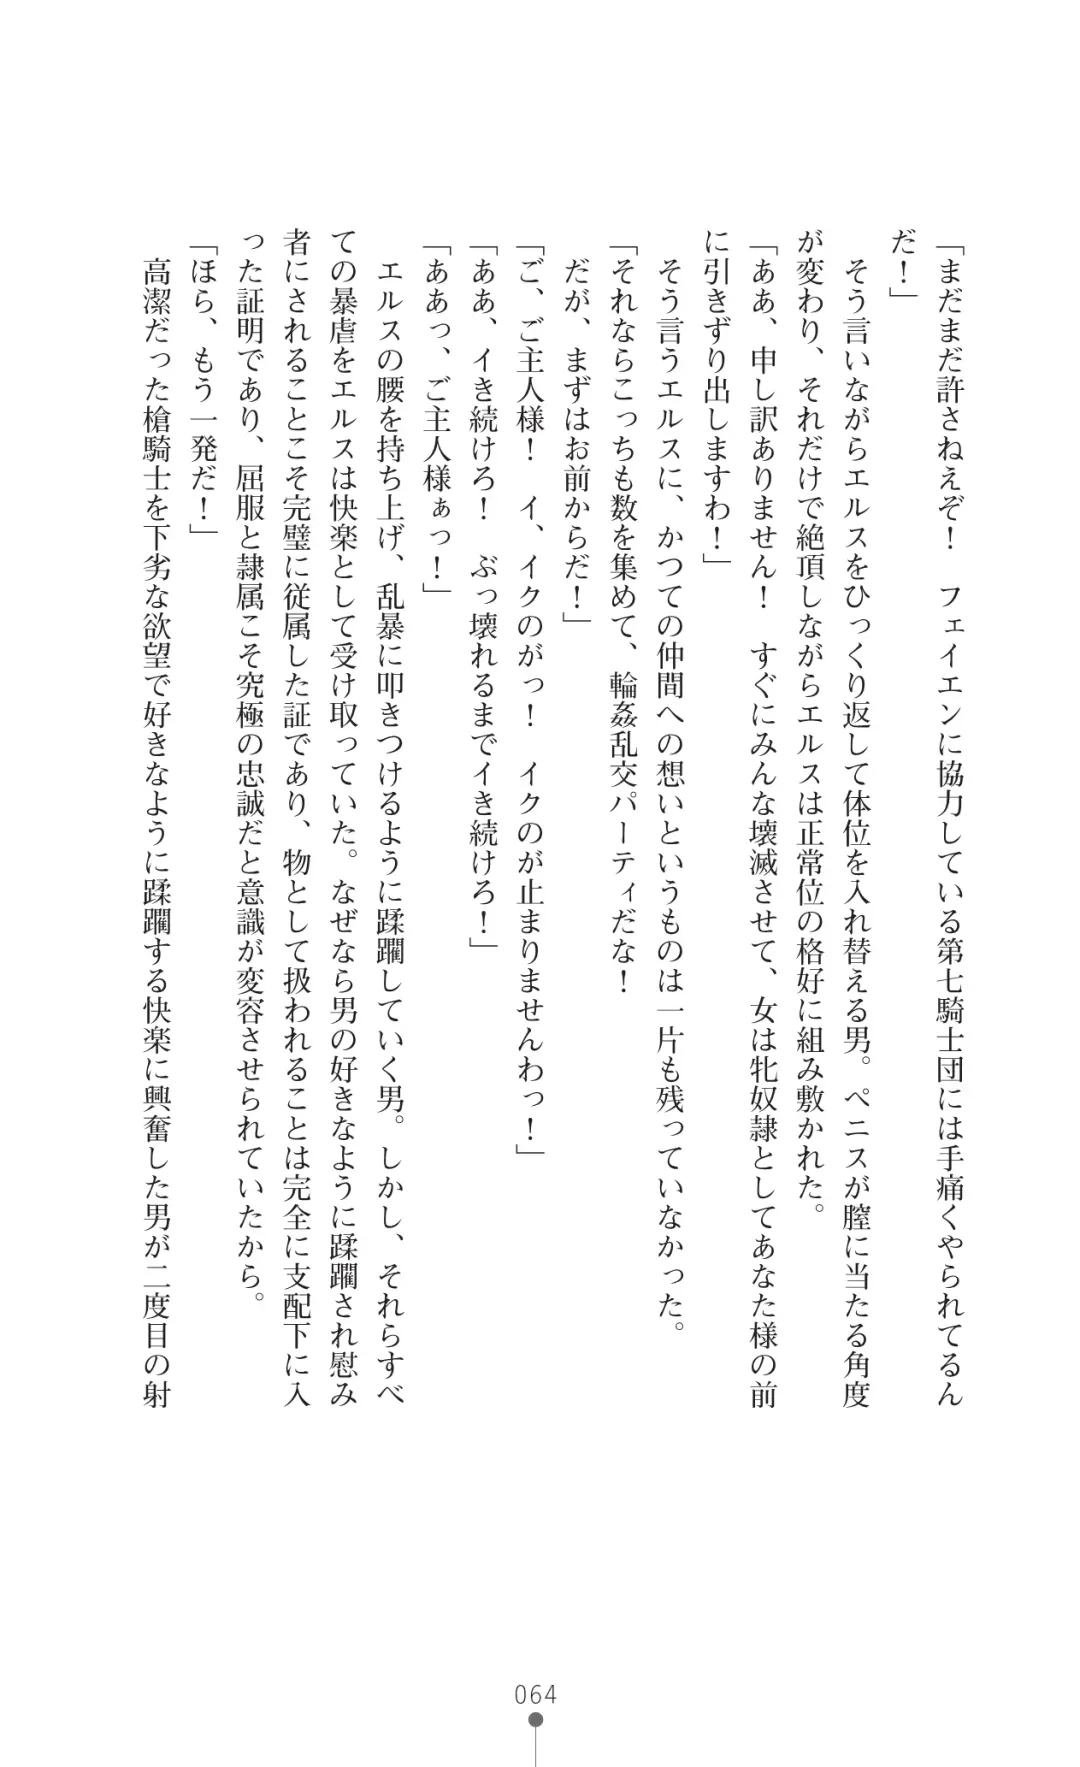 「まだまだ許さねえぞ！　フェイエンに協力している第七騎士団には手痛くやられてるん
だ！」
　そう言いながらエルスをひっくり返して体位を入れ替える男。ペニスが膣に当たる角度
が変わり、それだけで絶頂しながらエルスは正常位の格好に組み敷かれた。
「ああ、申し訳ありません！　すぐにみんな壊滅させて、女は牝奴隷としてあなた様の前
に引きずり出しますわ！」
　そう言うエルスに、かつての仲間への想いというものは一片も残っていなかった。
「それならこっちも数を集めて、輪姦乱交パーティだな！
　だが、まずはお前からだ！」
「ご、ご主人様！　イ、イクのがっ！　イクのが止まりませんわっ！」
「ああ、イき続けろ！　ぶっ壊れるまでイき続けろ！」
「ああっ、ご主人様ぁっ！」
　エルスの腰を持ち上げ、乱暴に叩きつけるように蹂躙していく男。しかし、それらすべ
ての暴虐をエルスは快楽として受け取っていた。なぜなら男の好きなように蹂躙され慰み
者にされることこそ完璧に従属した証であり、物として扱われることは完全に支配下に入
った証明であり、屈服と隷属こそ究極の忠誠だと意識が変容させられていたから。
「ほら、もう一発だ！」
　高潔だった槍騎士を下劣な欲望で好きなように蹂躙する快楽に興奮した男が二度目の射
064